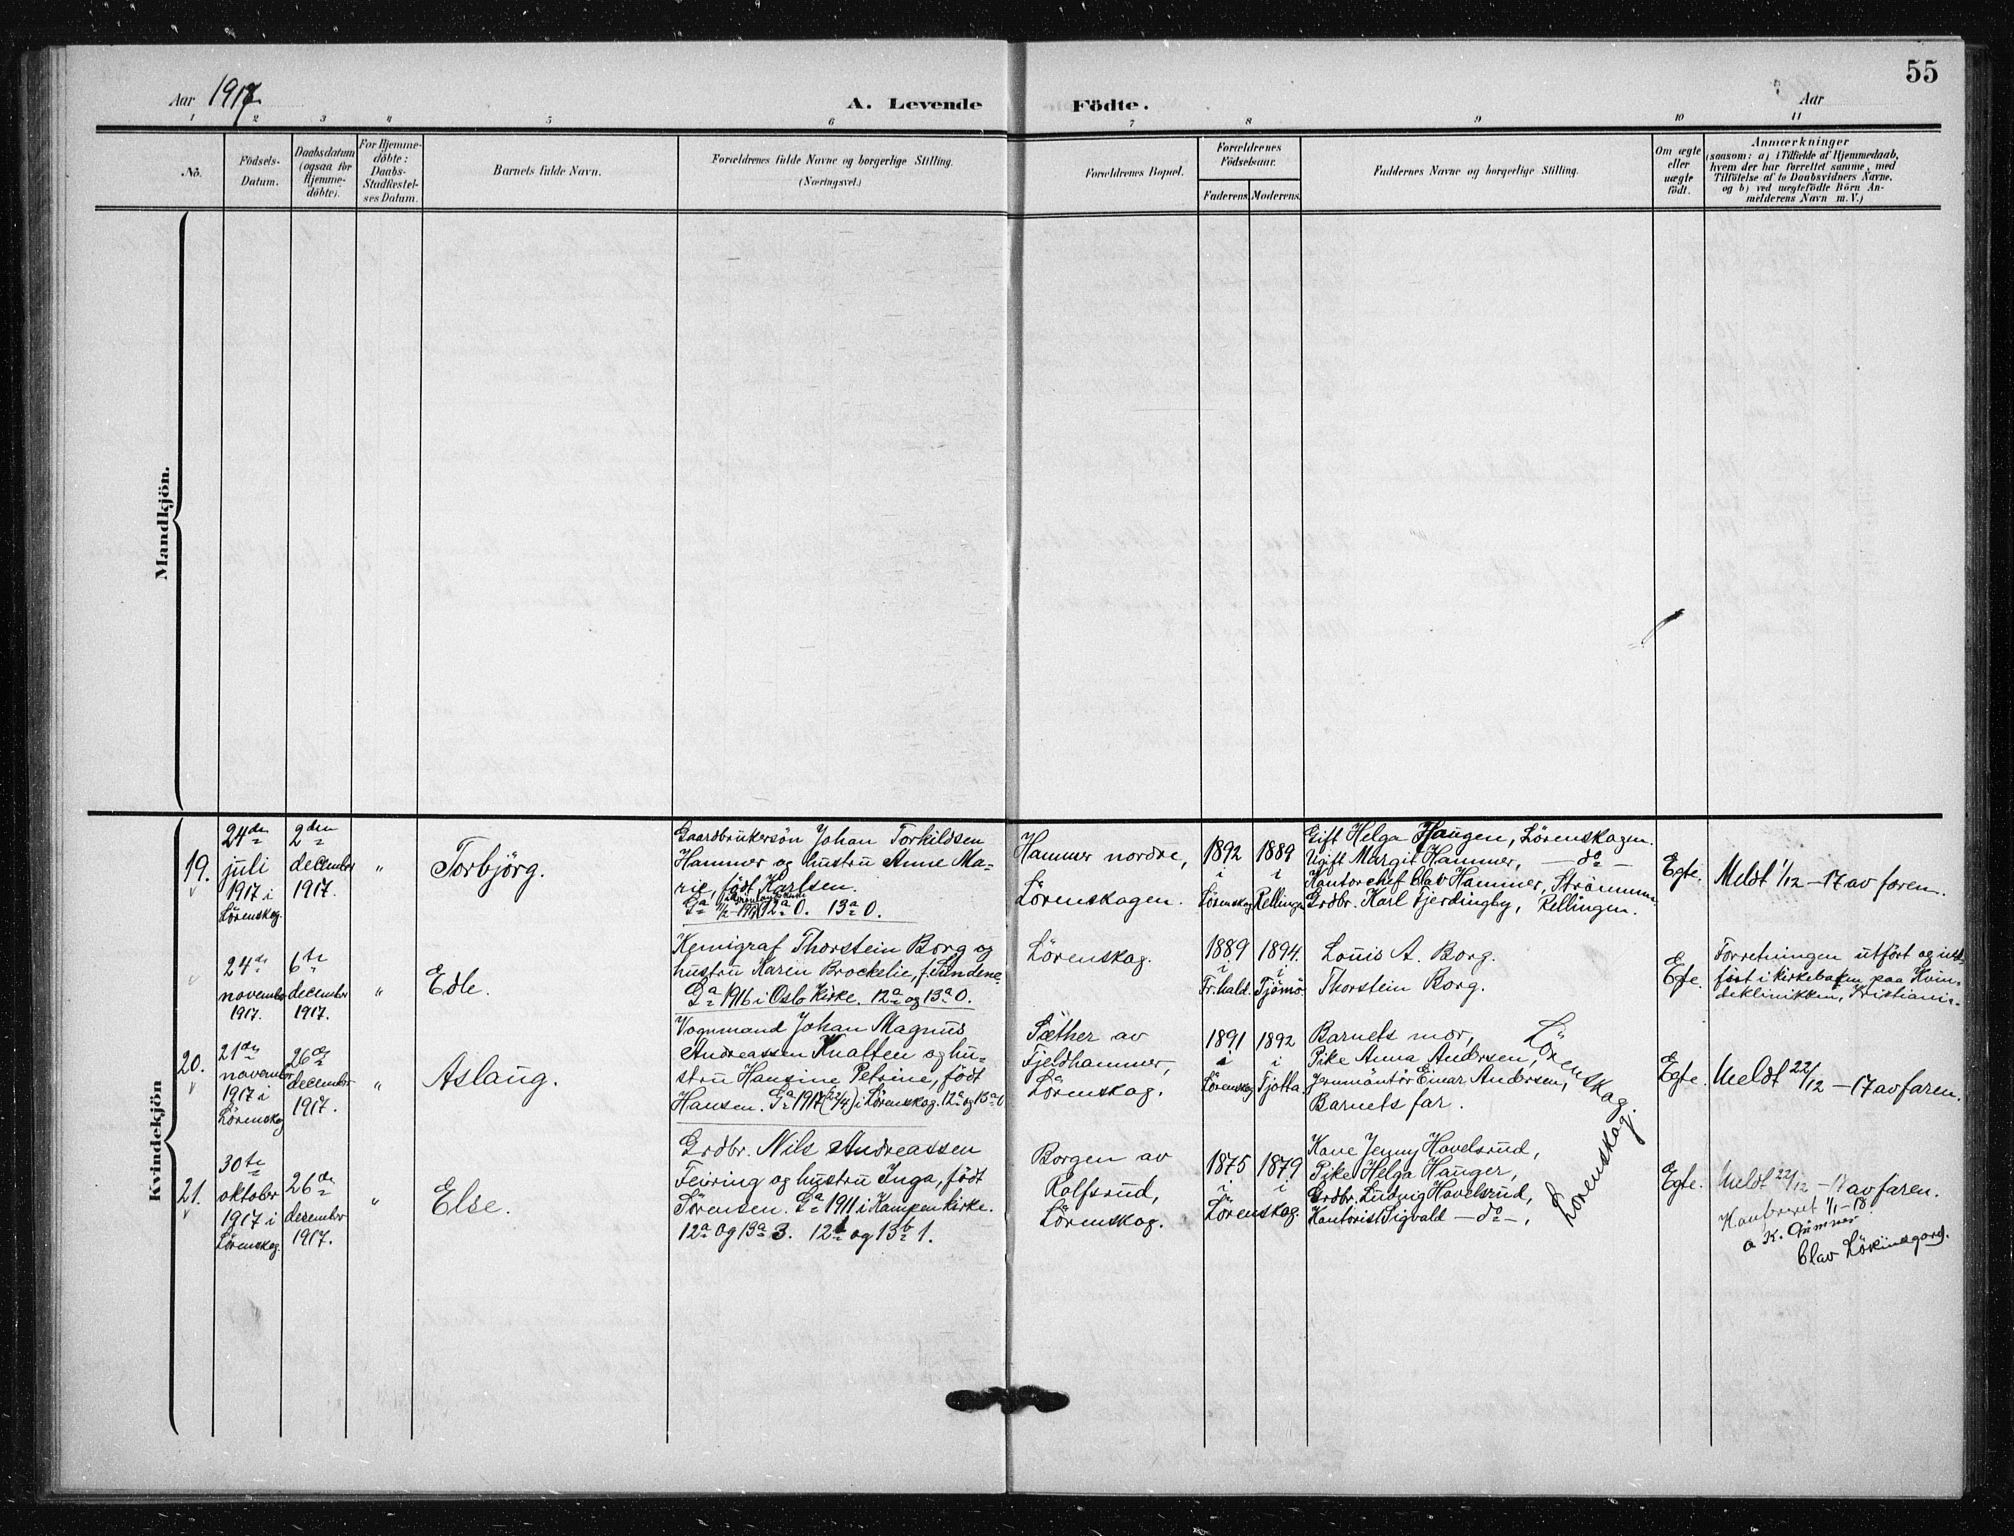 55
Aar 1917
A. Levende Födte.
Aar
1 2 3 4 5 6 7 8 9 10 11
No.
Födsels-
Datum.
Daabsdatum
(ogsaa for
Hjemme-
döbte).
For Hjemme-
döbte:
Daabs-
Stadfæstel-
ses Datum.
Barnets fulde Navn.
Forældrenes fulde Navne og borgerlige Stilling.
(Næringsvei.)
Forældrenes Bopæl.
Forældrenes
Födselsaar.
Faderens. Moderens.
Faddernes Navne og borgerlige Stilling.
Om ægte
eller
uægte
födt.
Anmærkninger
(saasom: a) i Tilfælde af Hjemmedaab,
hvem der har forrettet samme, med
Tilföielse af to Daabsvidners Navne,
og b) ved uægtefödte Börn An-
melderens Navn m. V.)
Mandkjön.
Kvindekjön
19.
24de
juli
1917 i
Lörenskog.
2den
december
1917.
"
Torbjörg.
Gaardbrukersön Johan Torkildsen
Hammer og hustru Anne Ma-
rie, född Karlsen.
12a 0. 13a 0.
Hammer nordre,
Lörenskogen.
1892
i
Lörenskog
1889
i
Rellingen
Gift Helga Haugen, Lörenskogen.
Ugift Margit Hammer, — do —
Kontorchef Olav Hammer, Strömmen.
Grdbr. Karl Fjerdingby, Rellingen.
Egte.
Meldt 1/12 – 17 av faren.
24de
november
1917.
6te
december
1917.
"
Edle.
Kemigraf Thorstein Borg og
hustru Karen Brockelie, f. Sundene.
Ga 1916 i Oslo Kirke. 12a og 13a 0.
Lörenskog.
1889
i
Fr.hald.
1894.
i
Tjömö.
Louis A. Borg.
Thorstein Borg.
Egte.
Forretningen utfört og ind-
fört i kirkeboken paa Kvin-
deklinikken, Kristiania.
20.
21de
november
1917 i
Lörenskog
26de
december
1917.
"
Aslaug.
Vognmand Johan Magnus
Andreassen Knatten og hu-
stru Hansine Petrine, född
Hansen. Ga 1917 (22/4) i Lörenskog. 12a og 13a 0
Sæther av
Fjeldhammer,
Lörenskog.
1891
i
Lörenskog
1892
i
Tjotta.
Barnets mor,
Pike Anna Andersen,
Jernmontör Einar Andersen,
Barnets far.
Lörenskog.
Egte.
Meldt 22/12 – 17 av faren.
21.
30te
oktober
1917 i
Lörenskog.
26de
desember
1917.
"
Else.
Grdbr. Nils Andreassen
Feiring og hustru Inga, född
Sörensen. Ga 1911 i Kampen kirke.
12a og 13a 3. 12b og 13b 1.
Borgen av
Rolfsrud,
Lörenskog.
1875
i
1879
i
Lörenskog.
Kone Jenny Hovelsrud,
Pike Helga Hauger,
Grdbr. Ludvig Hovelsrud,
Kontorist Sigvald — do —,
Lörenskog.
Egte.
Meldt 22/12 – 17 av faren.
1/1 – 18